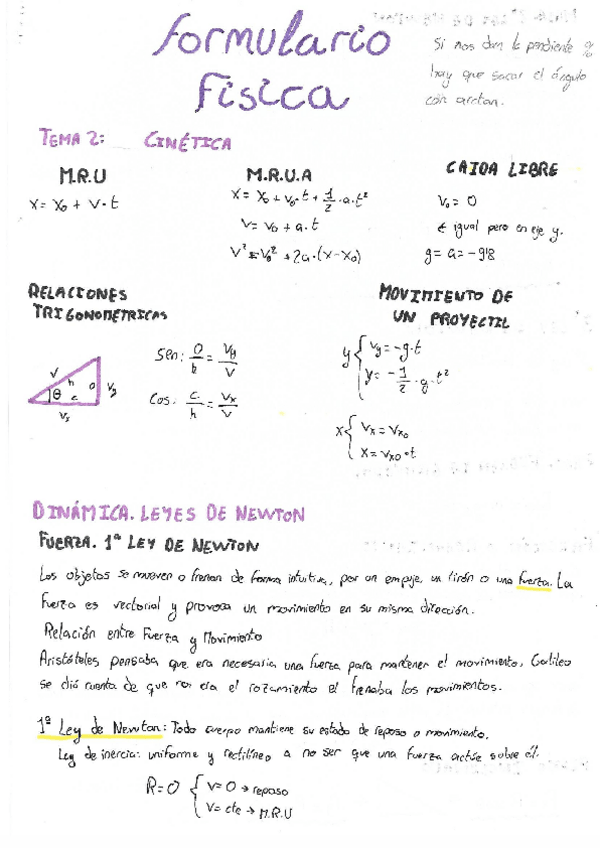 Formulario
Física
Si nos dan la pendiente %
hay que sacar el ángulo
con arctan.
TEMA 2: CINÉTICA
M.R.U
x = x₀ + v · t
M.R.U.A
x = x₀ + v₀ · t + 1/2 · a · t²
v = v₀ + a · t
v² = v₀² + 2a · (x - x₀)
CAIDA LIBRE
v₀ = 0
igual pero en eje y.
g = a = -9'8
RELACIONES
TRIGONOMÉTRICAS
v h o θ c Vy
Vx
Sen: O/h = Vy/V
Cos: C/h = Vx/V
MOVIMIENTO DE
UN PROYECTIL
y { Vy = -g · t
y = -1/2 · g · t²
x { Vx = Vx₀
x = Vx₀ · t
DINÁMICA. LEYES DE NEWTON
FUERZA. 1ª LEY DE NEWTON
Los objetos se mueven o frenan de forma intuitiva, por un empuje, un tirón o una fuerza. La
fuerza es vectorial y provoca un movimiento en su misma dirección.
Relación entre Fuerza y Movimiento
Aristóteles pensaba que era necesaria una fuerza para mantener el movimiento, Galileo
se dió cuenta de que era el rozamiento el frenaba los movimientos.
1ª Ley de Newton: Todo cuerpo mantiene su estado de reposo o movimiento,
Ley de inercia: uniforme y rectilíneo a no ser que una fuerza actúe sobre él.
R = 0 { v = 0 → reposo
v = cte → M.R.U